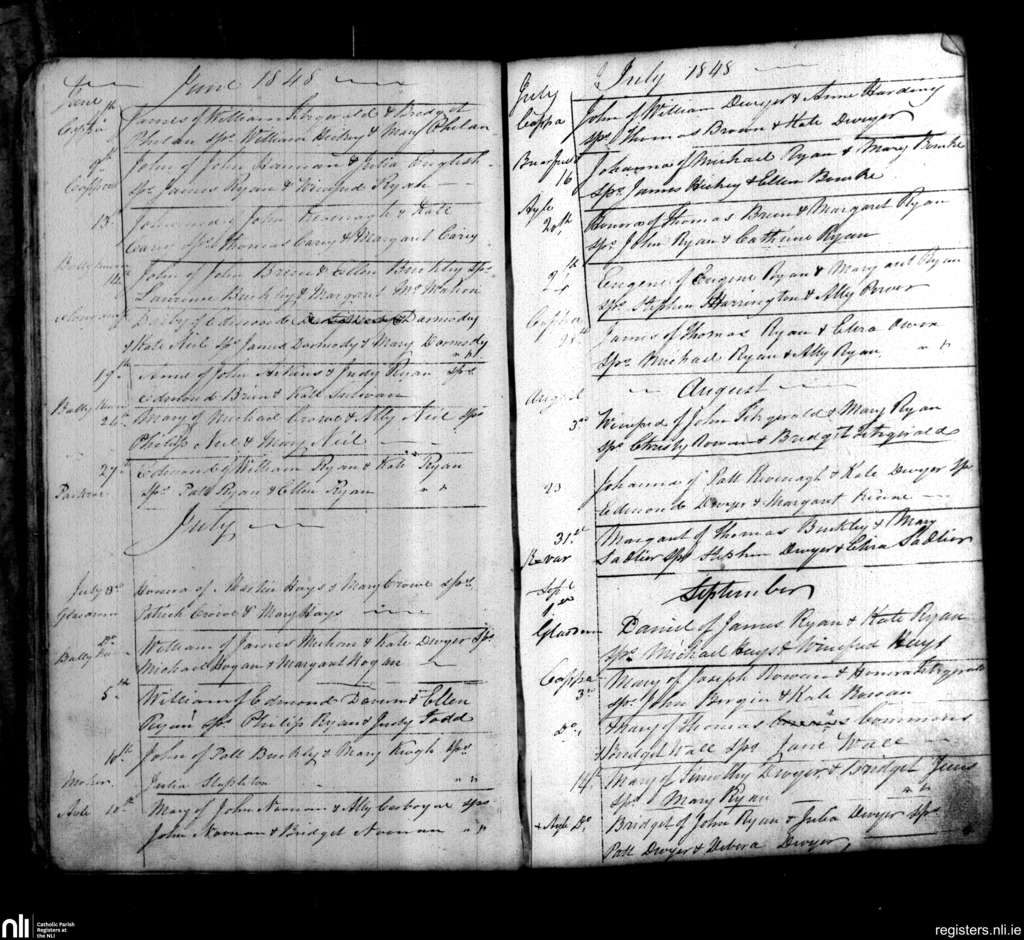 June 1848
June
Cappa James of William Fitzgerald & Bridget
9 Phelan Sps. William & Mary Phelan
9th John of John & Julia English
Cappa Sps. James Ryan & Winefred Ryan
13 of John Keavagh & Kate
Carey Sps. Thomas Carey & Margaret Carey
14 John of John Brien & Ellen Buckley Sps.
Laurence Buckley & Margaret McMahon
Darby of Edmond Darmody
& Kate Neil Sps. James Darmody & Mary Darmody
19th Anne of John & Judy Ryan Sps.
Edmond Brien & Kate Sulivan
24th Mary of Michael Crowe & Ally Neil Sps
Philip Neil & Mary Neil
27th Edmond of William Ryan & Kate Ryan
Sps. Patt Ryan & Ellen Ryan
July
July 3rd Honora of Martin Hays & Mary Crowe Sps.
Glassdrum Patrick Crowe & Mary Hays
Do. William of James Meehan & Kate Dwyer Sps
Michael Hogan & Margaret Hogan
5th William of Edmond Daven & Ellen
Ryan Sps. Philip Ryan & Judy Todd
10th John of Patt Buckley & Mary Keogh Sps.
Julia Stapleton
Aile 10th Mary of John Noonan & Ally Sps
John Noonan & Bridget Noonan
July 1848
July John of William Dwyer & Anne Harding
Cappa Sps. Thomas Brown & Kate Dwyer
Johanna of Michael Ryan & Mary Bourke
16 Sps. James Hickey & Ellen Bourke
Ayle Honora of Thomas Brien & Margaret Ryan
20th Sps. John Ryan & Catherine Ryan
Eugene of Eugene Ryan & Mary Ryan
Sps. Stephen Harrington & Ally Power
Cappa James of Thomas Ryan & Eliza
Sps. Michael Ryan & Ally Ryan
August August
3rd Winefred of John Fitzgerald & Mary Ryan
Sps. Christy Rowan & Bridget Fitzgerald
23 Johanna of Patt Kavenagh & Kate Dwyer Sps
Edmond Dwyer & Margaret
31st Margaret of Thomas Buckley & Mary
Sadlier Sps Stephen Dwyer & Eliza Sadlier
Sept. September
1st
Glassdrum Daniel of James Ryan & Kate Ryan
Sps. Michael Hays & Winefred Hays
Cappa Mary of Joseph Rowan & Honora Fitzgerald
3rd Sps. John Bergin & Kate
Do. Mary of Thomas Commons
& Bridget Wall Sps. Jane Wall
14th Mary of Timothy Dwyer & Bridget
Sps. Mary Ryan
Ayle Do. Bridget of John Ryan & Julia Dwyer Sps.
Patt Dwyer & Dwyer
nli
Catholic Parish
Registers at
the NLI
registers.nli.ie